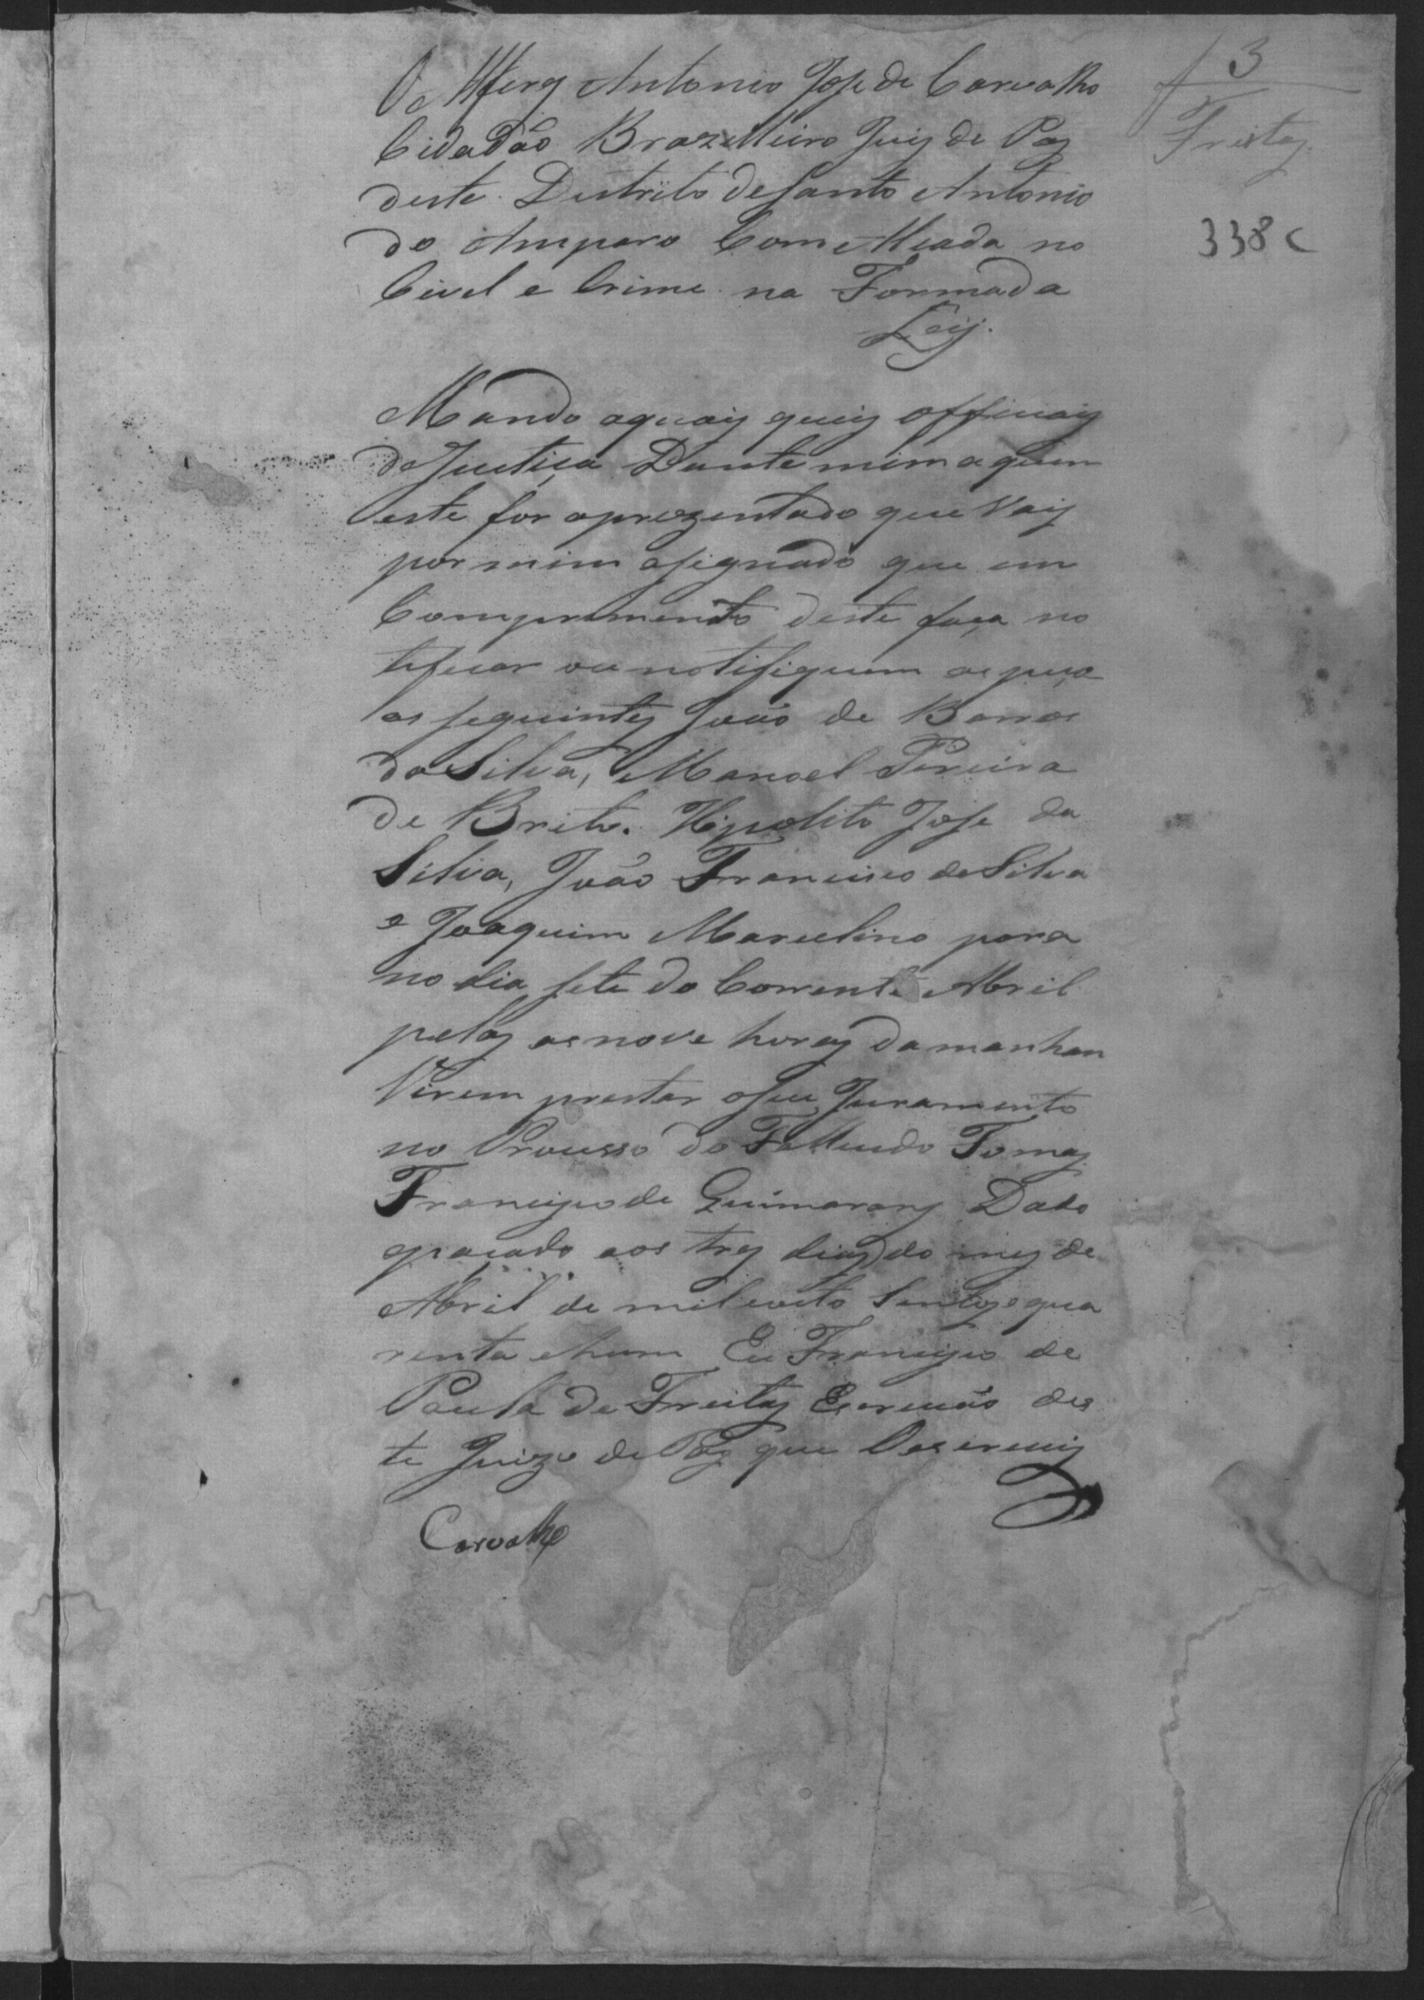 O Alferes Antonio Jose de Carvalho
Cidadão Brazilleiro Juiz de Paz
deste Destrito de Santo Antonio
do Amparo Com Alsada no
Civel e Crime na Forma da
Leij.
3
Freitas
338 C
Mando aquais quer officiais
de Justiça Dante mim a quem
este for aprezentado que Vai
por mim asignado que em
Comprimento deste faça no
tificar ou notifiquem as peço
as seguintes João de Barros
da Silva, Manoel Pereira
de Brito. Hipolito Jose da
Silva, João Francisco da Silva
e Joaquim Marcelino para
no dia sete do Corrente Abril
pelas as nove horas da manhan
Virem prestar o seu Juramento
no Procusso do Fallecido Tomas
Francisco de Guimarans Dado
epaçado aos tres dias do mes de
Abril de mil eoito Sentos e qua
renta ehum Eu Francisco de
Paula de Freitas Escrivão des
te Juizo de Paz que O escreviy
Carvalho